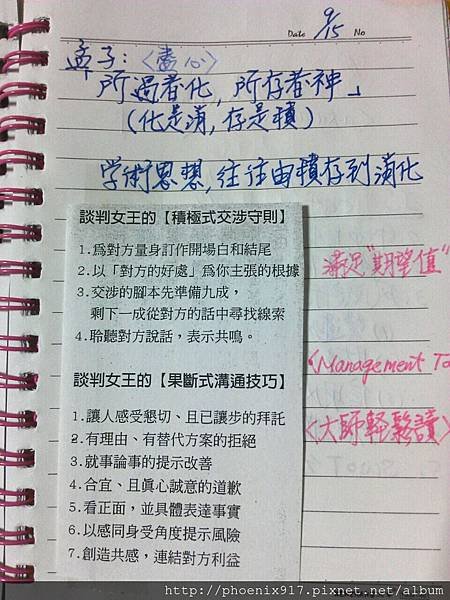 Date 9/15 No
孟子：〈盡心〉
「所過者化，所存者神」
（化是消，存是積）
学術思想，往往由積存到消化
談判女王的【積極式交涉守則】
1.爲對方量身訂作開場白和結尾
2.以「對方的好處」爲你主張的根據
3.交涉的腳本先準備九成，
剩下一成從對方的話中尋找線索
4.聆聽對方說話，表示共鳴。
滿足"期望值"
〈Management To
〈大師輕鬆讀〉
談判女王的【果斷式溝通技巧】
1.讓人感受懇切、且已讓步的拜託
2.有理由、有替代方案的拒絕
3.就事論事的提示改善
4.合宜、且眞心誠意的道歉
5.看正面，並具體表達事實
6.以感同身受角度提示風險
7.創造共感，連結對方利益
http://phoenix917.pixnet.net/album